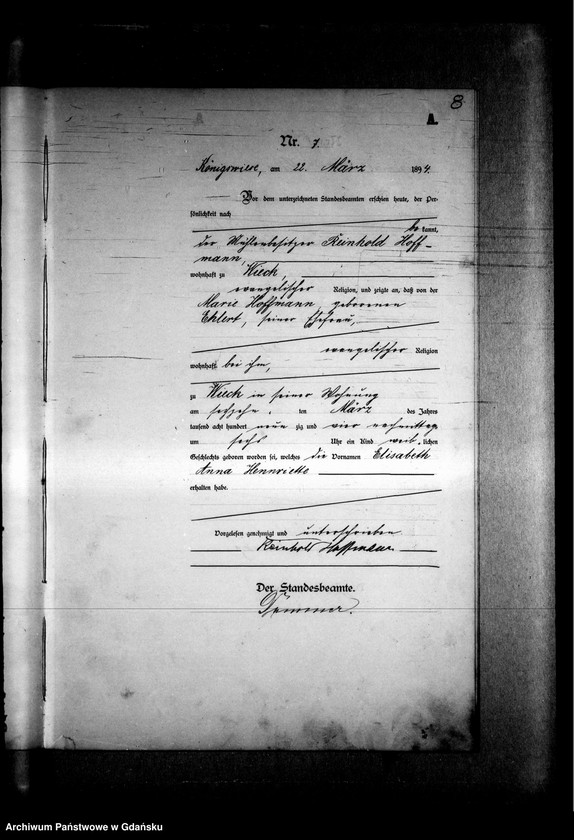 8
A.
Nr. 7.
Königswiese, am 22. März 1894.
Vor dem unterzeichneten Standesbeamten erschien heute, der Per-
sönlichkeit nach
be kannt,
der Mühlenbesitzer Reinhold Hoff-
mann,
wohnhaft zu Wiech,
evangelischer Religion, und zeigte an, daß von der
Marie Hoffmann geborenen
Ehlert, seiner Ehefrau,
evangelischer Religion
wohnhaft bei ihm,
zu Wiech in seiner Wohnung
am ten März des Jahres
tausend acht hundert neun zig und vier nachmittags
um sechs Uhr ein Kind weib lichen
Geschlechts geboren worden sei, welches die Vornamen Elisabeth
Anna Hennriette
erhalten habe.
Vorgelesen, genehmigt und unterschrieben
Reinhold Hoffmann.
Der Standesbeamte.
Archiwum Państwowe w Gdańsku